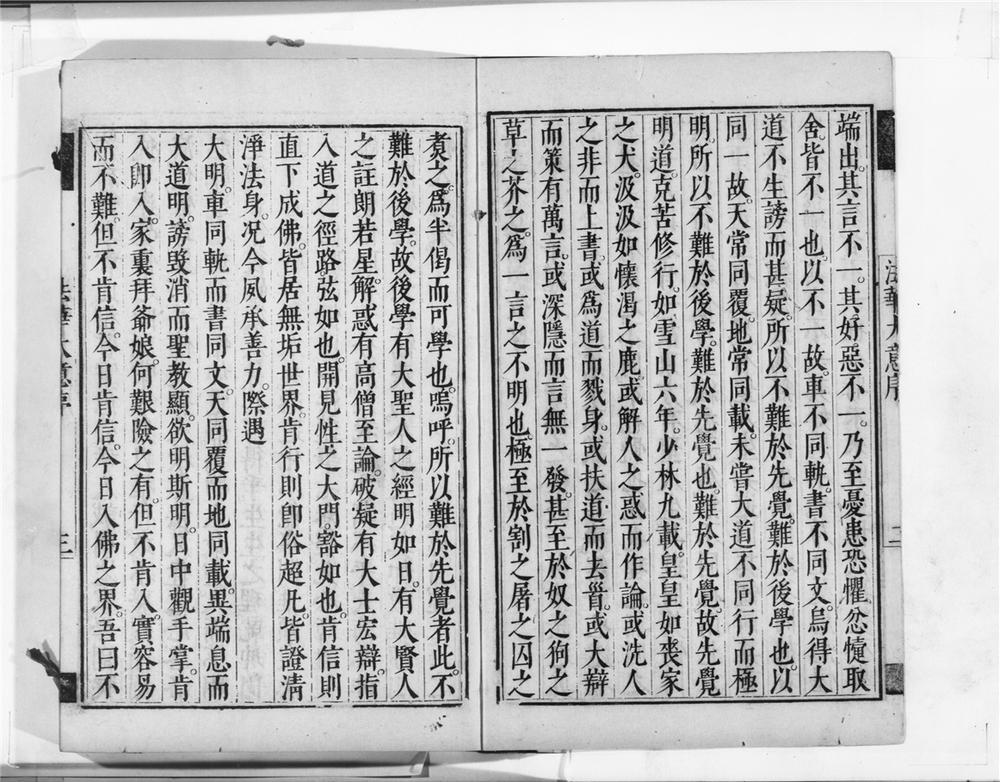 端出。其言不一。其好惡不一。乃至憂患恐懼忿懥取
舍皆不一也。以不一故。車不同軌。書不同文。烏得大
道不生謗而甚疑。所以不難於先覺。難於後學也。以
同一故。天常同覆。地常同載。未嘗大道不同行而極
明。所以不難於後學。難於先覺也。難於先覺。故先覺
明道。克苦修行。如雪山六年。少林九載。皇皇如喪家
之犬。汲汲如懷渴之鹿。或解人之惑而作論。或洗人
之非而上書。或為道而戮身。或扶道而去晉。或大辯
而策有萬言。或深隱而言無一發。甚至於奴之狗之
草之芥之。為一言之不明也。極至於割之屠之囚之
法華大意序
二
煑之。為半偈而可學也。嗚呼。所以難於先覺者此。不
難於後學。故後學有大聖人之經明如日。有大賢人
之註朗若星。解惑有高僧至論。破疑有大士宏辯。指
入道之徑路弦如也。開見性之大門。豁如也。肯信則
直下成佛。皆居無垢世界。肯行則即俗超凡。皆證清
淨法身。况今夙承善力。際遇
大明。車同軌而書同文。天同覆而地同載。異端息而
大道明。謗毀消而聖教顯。欲明斯明。日中觀手掌。肯
入即入。家裏拜爺娘。何艱險之有。但不肯入。實容易
而不難。但不肯信。今日肯信。今日入佛之界。吾曰不
法華大意序
三